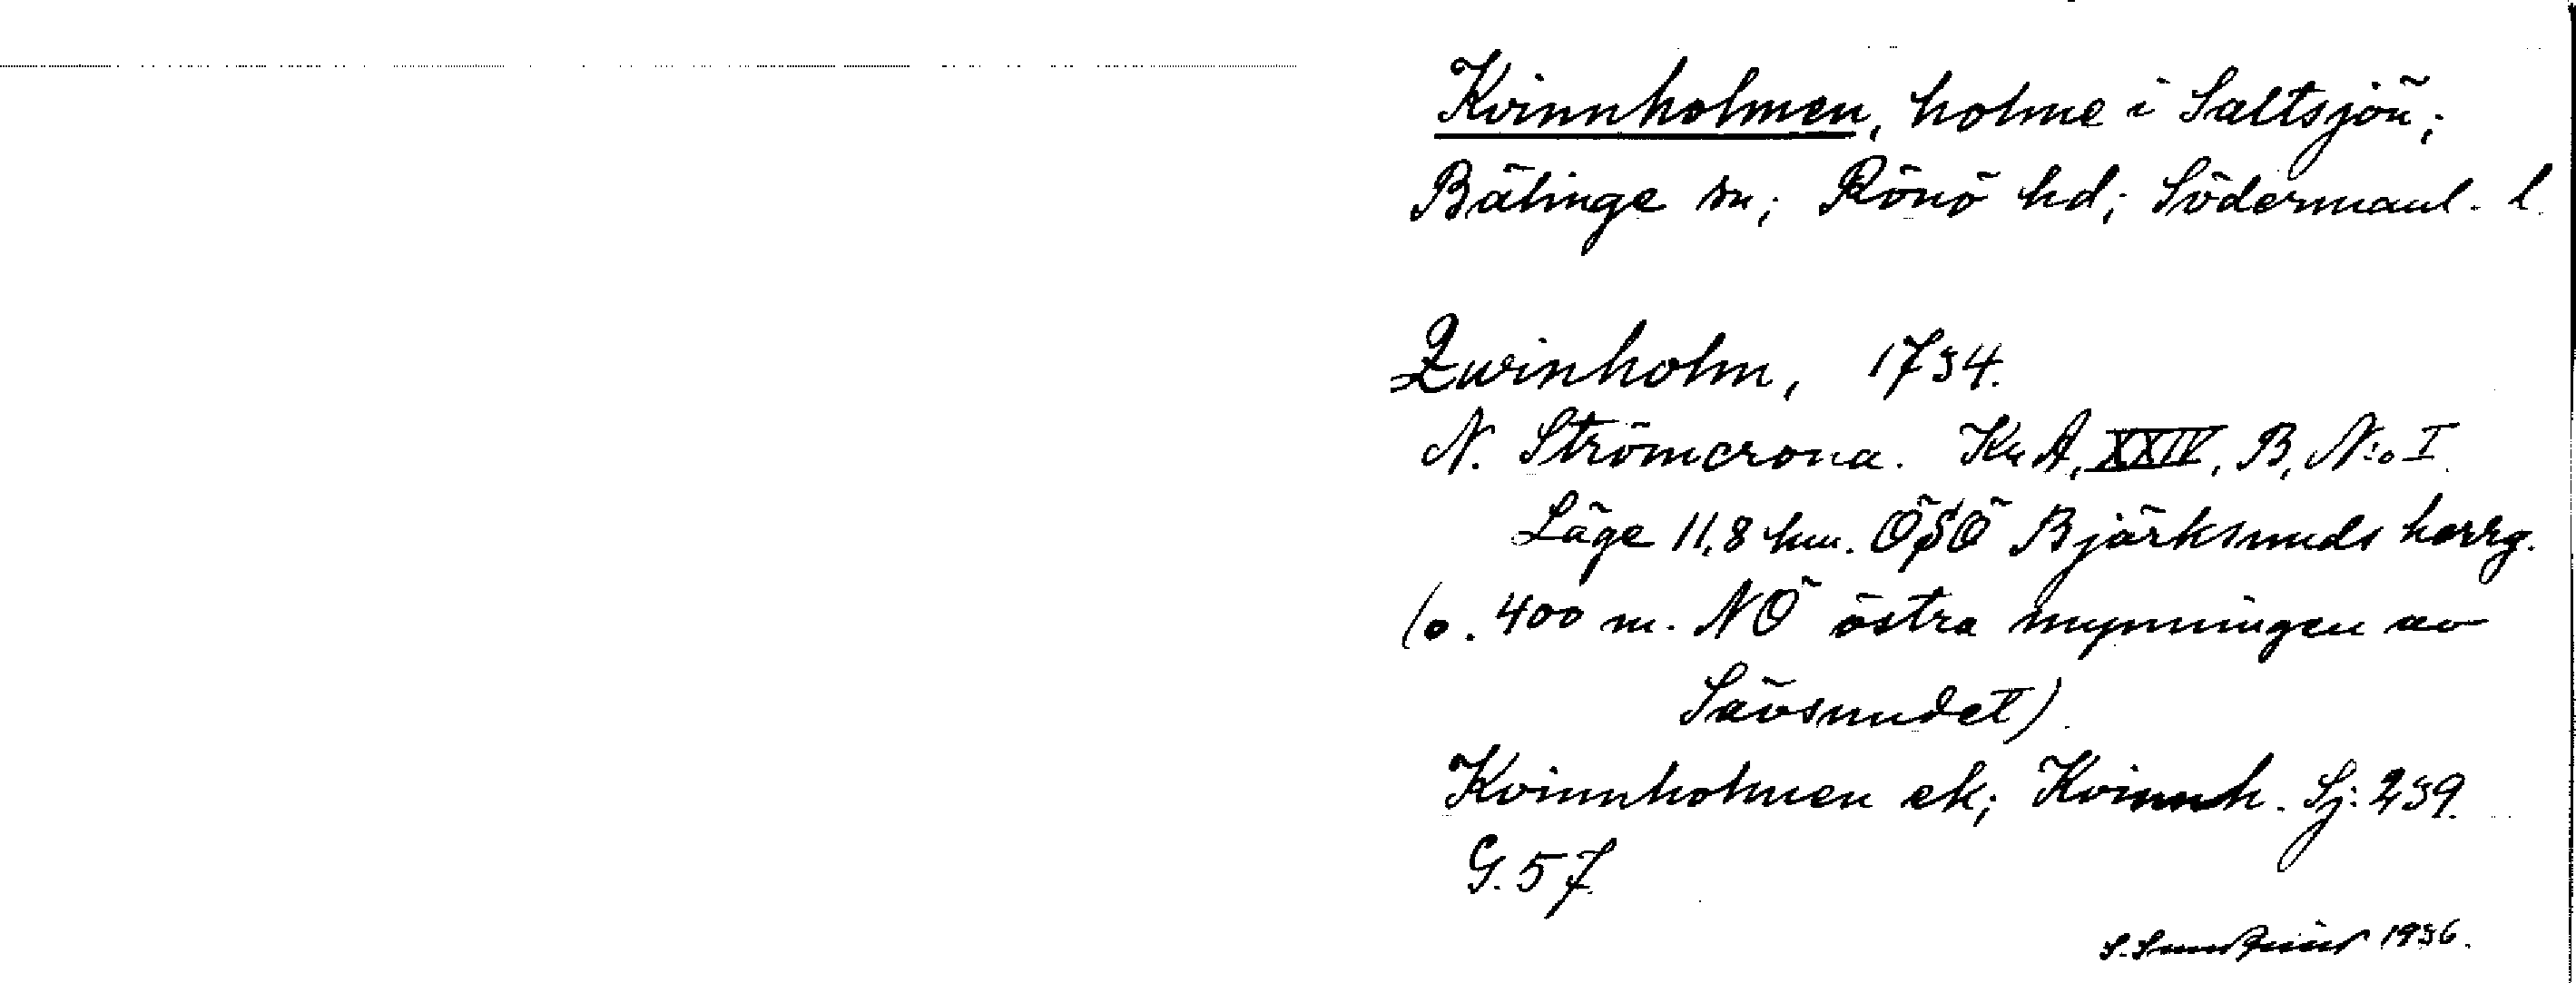 Kvinnholmen, holme i Saltsjön;
Bälinge sn; Rönö hd; Södermanl. l.
Qwinholm, 1734.
N. Strömcrona. Kr A, XXIV, B, N:o I.
Läge 11,8 km. ÖSÖ Björksunds herrg.
(o. 400 m. NÖ östra mynningen av
Sävsundet).
Kvinnholmen ek; Kvinnh. Sj: 239.
G. 57
S. 1936.